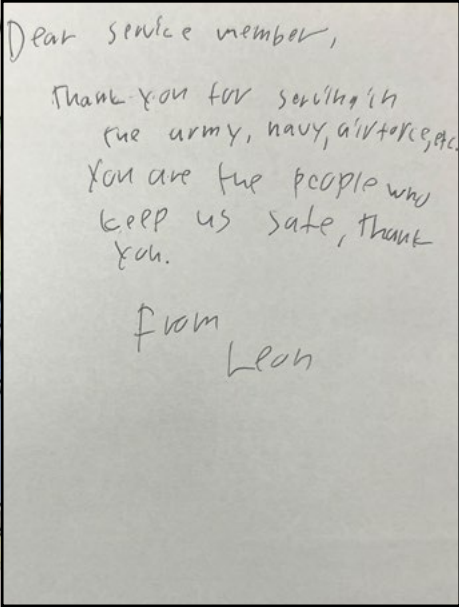 Dear service member,
Thank you for serving in
the army, navy, airforce, etc.
You are the people who
keep us safe, thank
you.
From
Leon